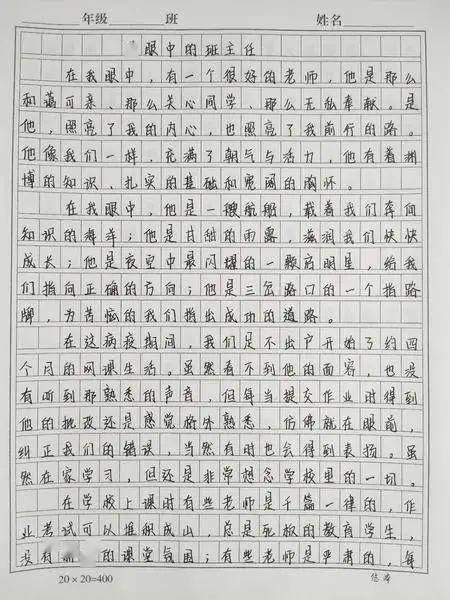 年级 班 姓名
眼中的班主任
在我眼中，有一个很好的老师，他是那么
和蔼可亲、那么关心同学、那么无私奉献。是
他，照亮了我的内心，也照亮了我前行的路。
他像我们一样，充满了朝气与活力，他有着渊
博的知识、扎实的基础和宽阔的胸怀。
在我眼中，他是一艘航船，载着我们奔向
知识的海洋；他是甘甜的雨露，滋润我们快快
成长；他是夜空中最闪耀的一颗启明星，给我
们指向正确的方向；他是三岔路口的一个指路
牌，为苦恼的我们指出成功的道路。
在这病疫期间，我们是不出户开始了约四
个月的网课生活。虽然看不到他的面容，也没
有听到那熟悉的声音，但每当提交作业时得到
他的批改还是感觉格外熟悉，仿佛就在眼前，
纠正我们的错误，当然有时也会得到表扬。虽
然在家学习，但还是非常想念学校里的一切。
在学校上课时有些老师是千篇一律的，作
业考试可以堆积成山，总是死板的教育学生，
没有 的课堂氛围；有些老师是严肃的，每
20×20=400